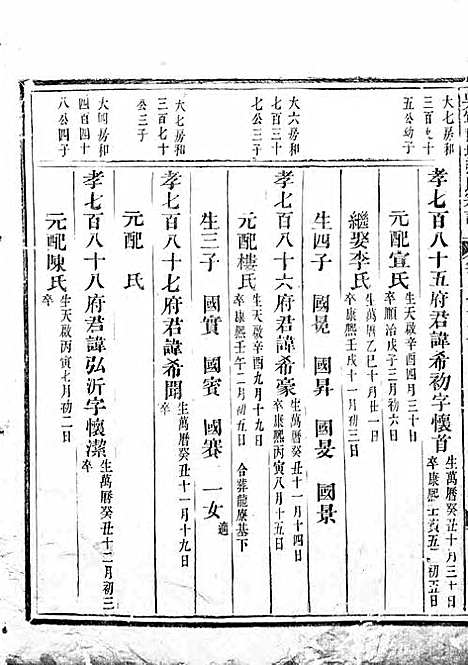 大七房和
三百九十
五公幼子
孝七百八十五府君諱希初字懷首 生萬曆癸丑十月三十日
卒康熙壬寅五月初五日
元配宣氏 生天啟辛酉四月三十日
卒順治戊子三月初六日
繼娶李氏 生萬曆乙巳十月廿一日
卒康熙壬戌十一月初三日
生四子 國晃 國昇 國旻 國景
大六房和
七百三十
七公三子
孝七百八十六府君諱希豪 生萬曆癸丑十一月十四日
卒康熙丙寅八月十五日
元配樓氏 生天啟辛酉九月十九日
卒康熙壬午二月初五日 合葬龍康基下
生三子 國實 國賓 國賽 一女 適
大七房和
三百七十
公三子
孝七百八十七府君諱希聞 生萬曆癸丑十一月十九日
卒
元配 氏
大四房和
四百四十
八公四子
孝七百八十八府君諱弘沂字懷潔 生萬曆癸丑十二月初三
卒
元配陳氏 生天啟丙寅七月初二日
卒